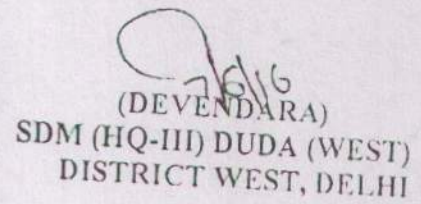 7/6/16
(DEVENDARA)
SDM (HQ-III) DUDA (WEST)
DISTRICT WEST, DELHI